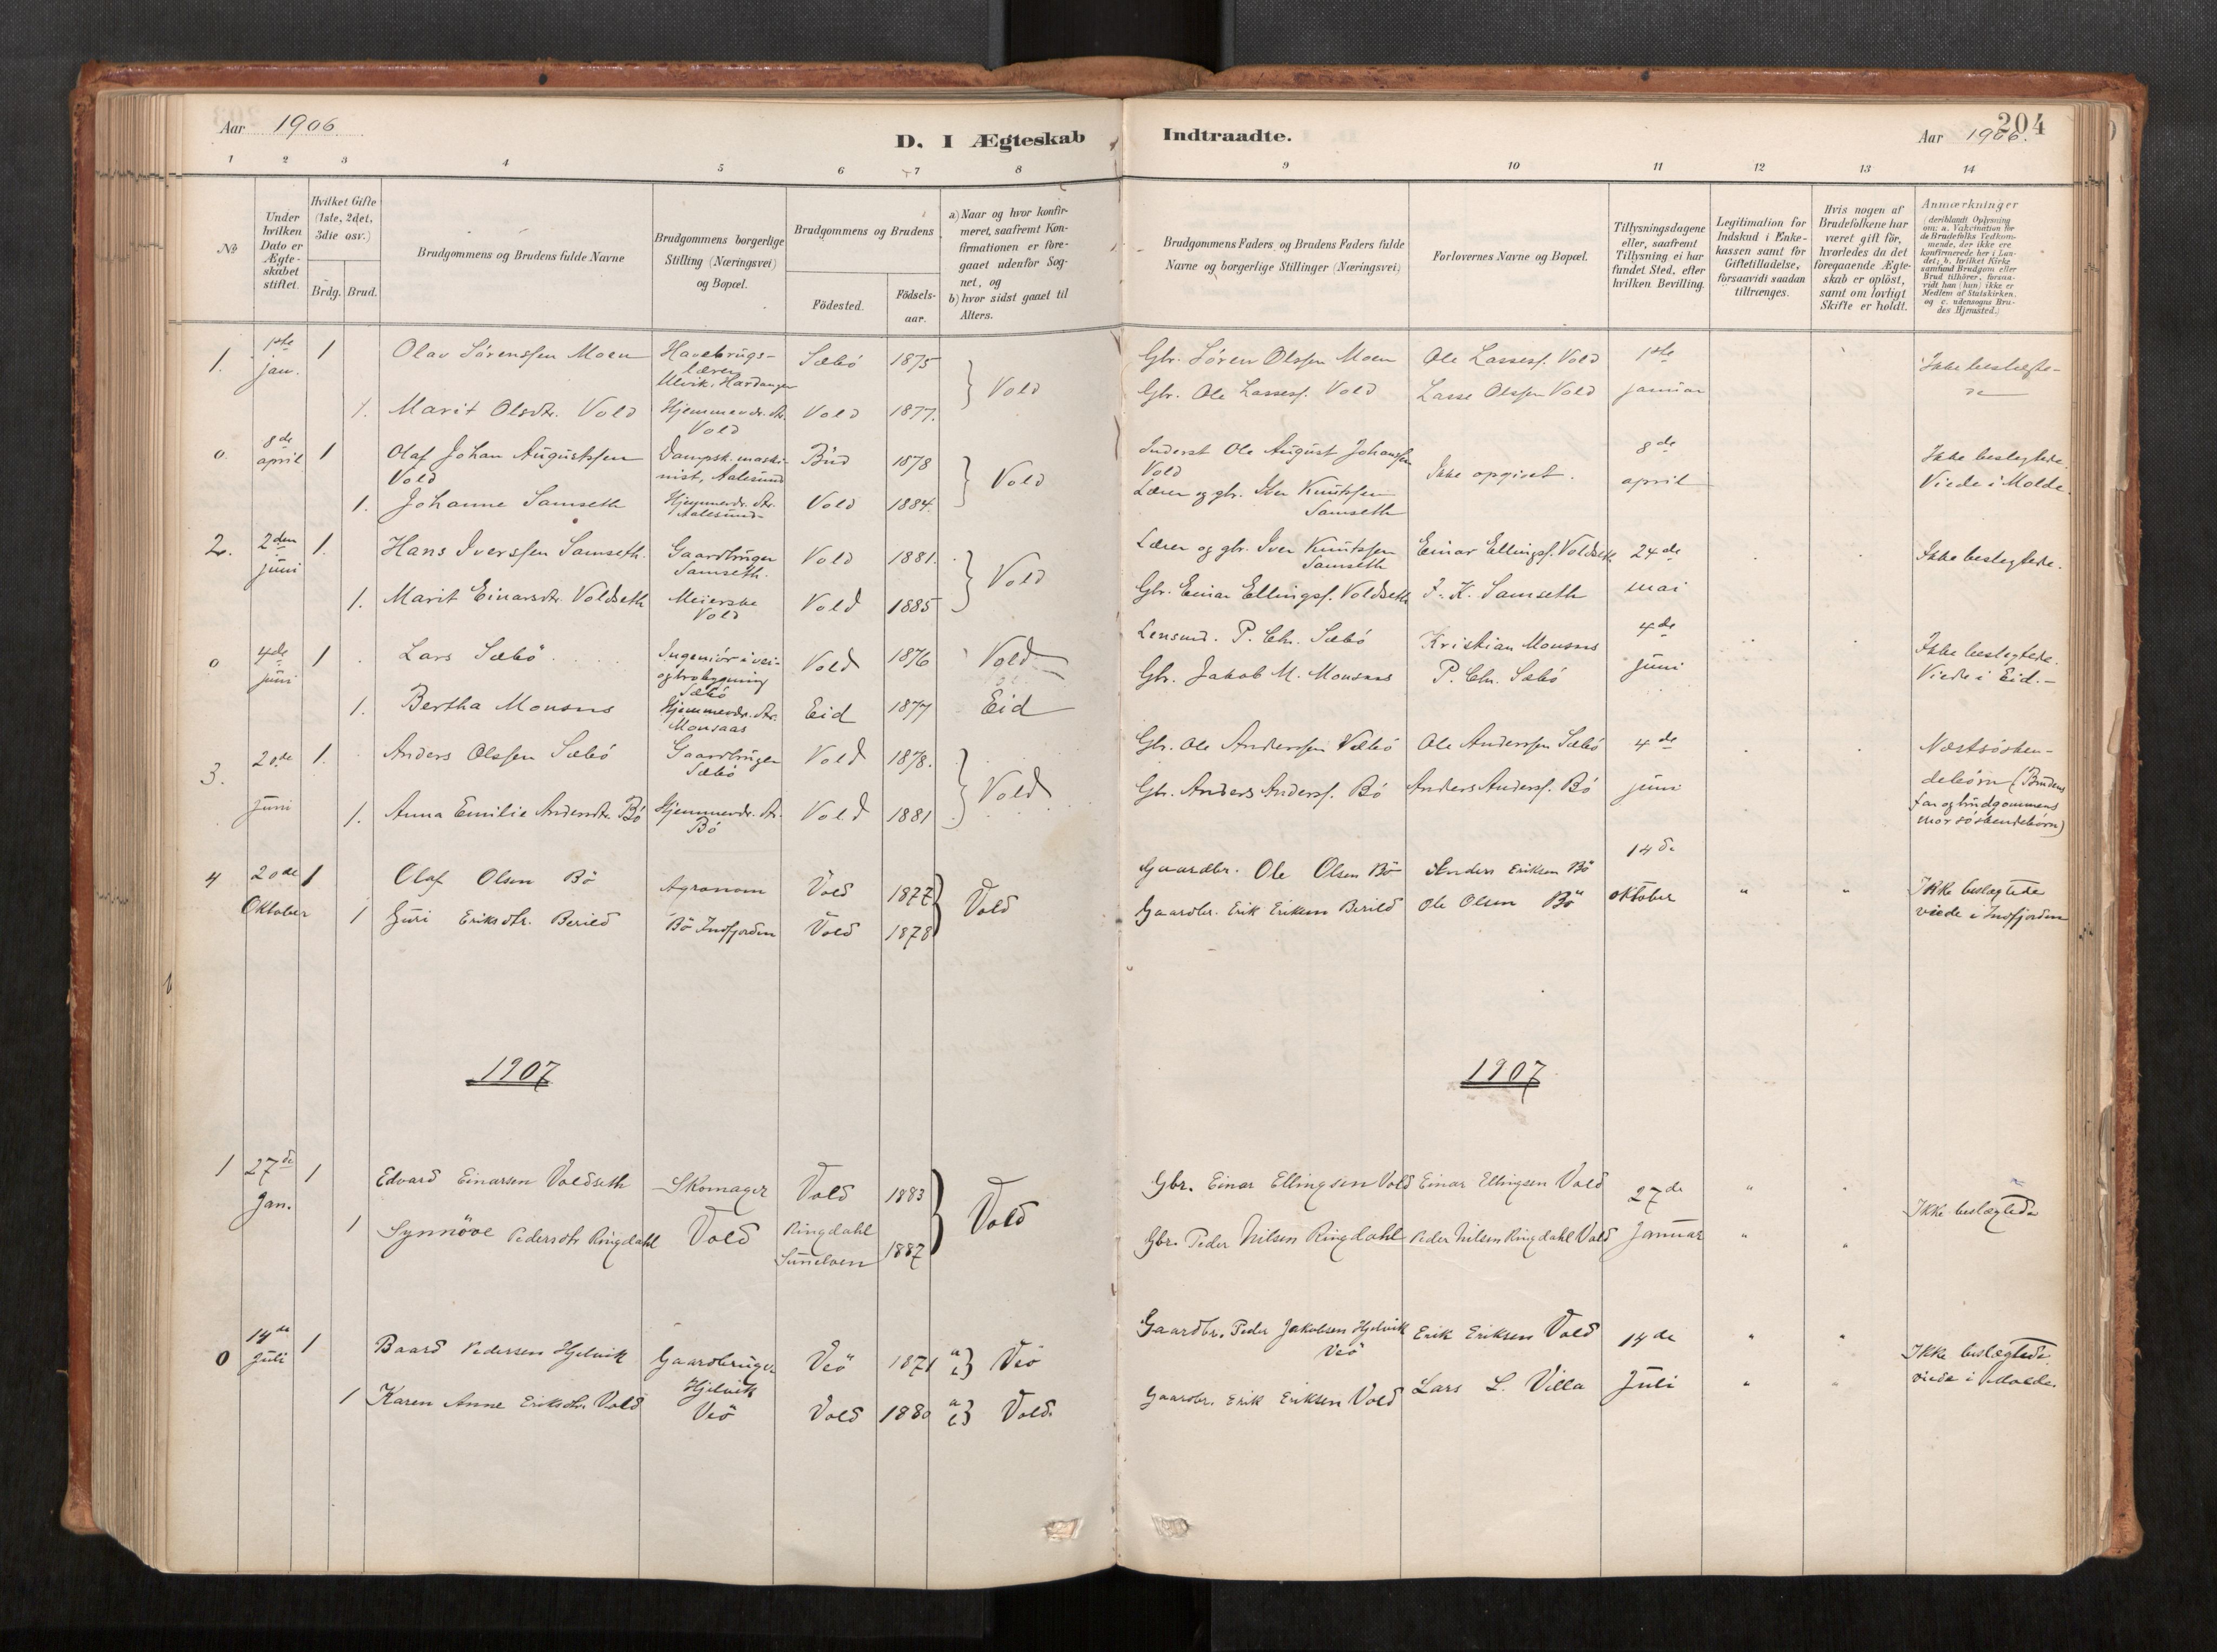 Aar 1906.
D. I Ægteskab
Indtraadte.
204
Aar 1906.
1 2 3 4 5 6 7 8 9 10 11 12 13 14
No
Under hvilken Dato er Ægte-skabet stiftet.
Hvilket Gifte (1ste, 2det, 3die osv.)
Brdg. Brud.
Brudgommens og Brudens fulde Navne
Brudgommens borgerlige Stilling (Næringsvei) og Bopæl.
Brudgommens og Brudens
Födested.
Födsels-aar.
a) Naar og hvor konfir-meret, saafremt Kon-firmationen er fore-gaaet udenfor Sog-net, og
b) hvor sidst gaaet til Alters.
Brudgommens Faders og Brudens Faders fulde Navne og borgerlige Stillinger (Næringsvei)
Forlovernes Navne og Bopæl.
Tillysningsdagene eller, saafremt Tillysning ei har fundet Sted, efter hvilken Bevilling.
Legitimation for Indskud i Enke-kassen samt for Giftetilladelse, forsaavidt saadan tiltrænges.
Hvis nogen af Brudefolkene har været gift för, hvorledes da det foregaaende Ægte-skab er oplöst, samt om lovligt Skifte er holdt.
Anmærkninger
(deriblandt Oplysning om: a. Vakcination for de Brudefolks Vedkom-mende, der ikke ere konfirmerede her i Lan-det; b. hvilket Kirke-samfund Brudgom eller Brud tilhörer, forsaa-vidt han (hun) ikke er Medlem af Statskirken, og c. udensogns Bru-des Hjemsted.)
1. 1ste jan. 1 Olav Sörenssen Moen Havebrugs-lærer Ulvik, Hardanger Sæbö 1875 } Vold Gbr. Sören Olssen Moen Ole Lassess. Vold 1ste Ikke beslægte-
1. Marit Olsdtr. Vold Hjemmev. dtr. Vold Vold 1877. Gbr. Ole Lassess. Vold Lasse Olssen Vold januar de
0. 8de april 1 Olaf Johan Augustssen Vold Dampsk. maski-nist, Aalesund Bud 1878 } Vold Inderst Ole August Johanssen Vold Ikke opgivet. 8de Ikke beslegtede.
1. Johanne Samseth Hjemmev. dtr. Aalesund Vold 1884. Lærer og gbr. Iver Knutssen Samseth april Viede i Molde.
2. 2den juni 1. Hans Iverssen Samseth. Gaardbruger Samseth. Vold 1881. } Vold Lærer og gbr. Iver Knutssen Samseth Einar Ellingss. Voldseth 24de Ikke beslegtede.
1. Marit Einarsdtr. Voldseth Meierske Vold Vold 1885 Gbr. Einar Ellingss. Voldseth I. K. Samseth mai
0 4de juni 1 Lars Sæbö Ingeniör i vei- og brobygning Sæbö Vold 1876 Vold Lensmd. P. Chr. Sæbö Kristian Monsaas 4de Ikke beslegtede.
1. Bertha Monsaas Hjemmev. dtr. Monsaas Eid 1877 Eid Gbr. Jakob M. Monsaas P. Chr. Sæbö juni Viede i Eid.
3. 20de juni 1. Anders Olssen Sæbö Gaardbruger Sæbö Vold 1878. } Vold Gbr. Ole Anderssen Sæbö Ole Anderssen Sæbö 4de Næstsösken-
1. Anna Emilie Andersdtr. Bö Hjemmev. dtr. Bö Vold 1881 Gbr. Anders Anderss. Bö Anders Anderss. Bö juni debörn (Brudens far og brudgommens mor söskendebörn)
4 20de Oktober 1 Olaf Olsen Bö Agronom Vold 1877 } Vold Gaardbr. Ole Olsen Bö Anders Eriksen Bö 14de Ikke beslægtede
1 Guri Eriksdtr. Berild Bö Indfjorden Vold 1878 Gaardbr. Erik Eriksen Berild Ole Olsen Bö Oktober " " viede i Indfjorden
1907
1907
1 27de Jan. 1 Edvard Einarsen Voldseth Skomager Vold 1883 } Vold Gbr. Einar Ellingsen Vold Einar Ellingsen Vold 27de " " Ikke beslægtede
1 Synnöve Pedersdtr Ringdahl Vold Ringdahl Sunelven 1887 Gbr. Peder Nilsen Ringdahl Peder Nilsen Ringdahl Vold Januar " "
0 14de Juli 1 Baard Pedersen Hjelvik Gaardbruger Veö 1871 a b } Veö Gaardbr. Peder Jakobsen Hjelvik Veö Erik Eriksen Vold 14de " " Ikke beslægtede.
1 Karen Anne Eriksdtr. Vold Hjelvik Veö Vold 1880 a b } Vold. Gaardbr. Erik Eriksen Vold Lars L. Villa Juli " " viede i Molde.